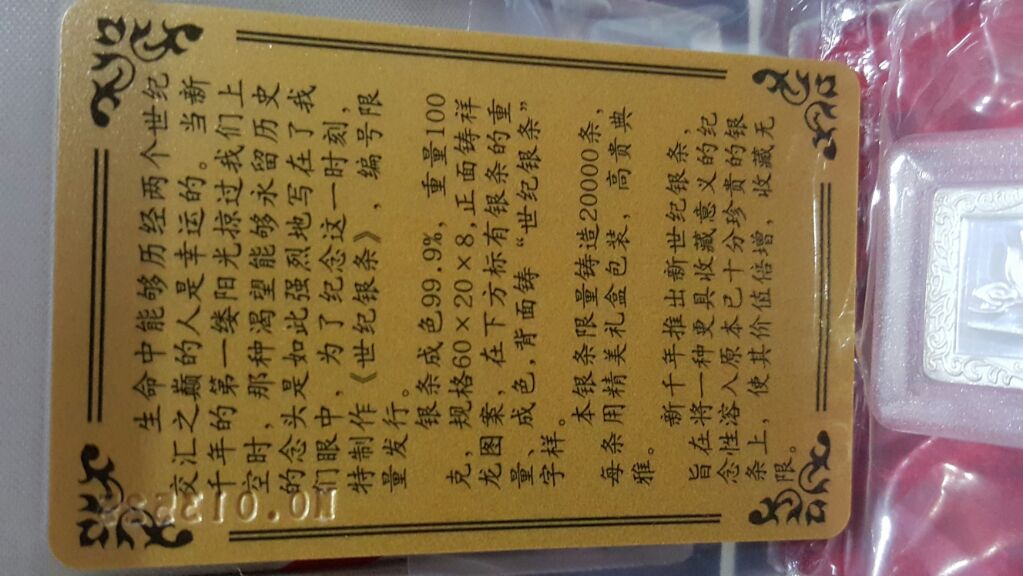 生命中能够历经两个世纪
交汇之巅的人是幸运的。当新
千年的第一缕阳光掠过我们上
空时，那种渴望能够永留历史
的念头是如此强烈地写在了我
们眼中，为了纪念这一时刻，
特制作《世纪银条》，编号限
量发行。
银条成色99.9%，重量100
克，规格60×20×8，正面铸祥
龙图案，在下方标有银条的重
量、成色，背面铸“世纪银条”
字样。
本银条限量铸造20000条，
每条用精美礼盒包装，高贵典
雅。
新千年推出新世纪银条，
旨在将一种更具收藏意义的纪
念性溶入原本已十分珍贵的银
条上，使其价值倍增，收藏无
限。